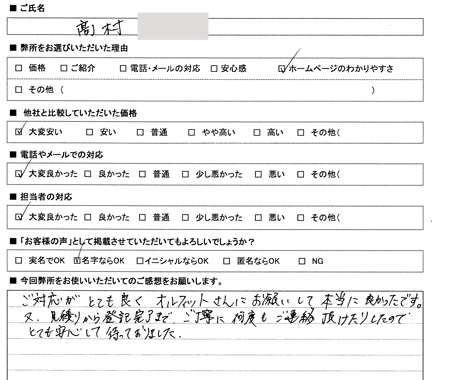 ■ ご氏名
高村
■ 弊所をお選びいただいた理由
□ 価格 □ご紹介 □電話・メールの対応 □安心感 ☑ホームページのわかりやすさ
□ その他 ( )
■ 他社と比較していただいた価格
☑ 大変安い □ 安い □ 普通 □ やや高い □ 高い □ その他(
■ 電話やメールでの対応
☑ 大変良かった □ 良かった □ 普通 □ 少し悪かった □ 悪い □ その他(
■ 担当者の対応
☑ 大変良かった □ 良かった □ 普通 □ 少し悪かった □ 悪い □ その他(
■ 「お客様の声」として掲載させていただいてもよろしいでしょうか?
□ 実名でOK ☑名字ならOK □イニシャルならOK □ 匿名ならOK □ NG
■ 今回弊所をお使いいただいてのご感想をお願いします。
ご対応が とても良く オルフィットさんにお願いして 本当に良かったです。
又、見積りから登記完了まで、ご丁寧に 何度も ご連絡 頂けたりしたので
とても安心して 待っておりました。